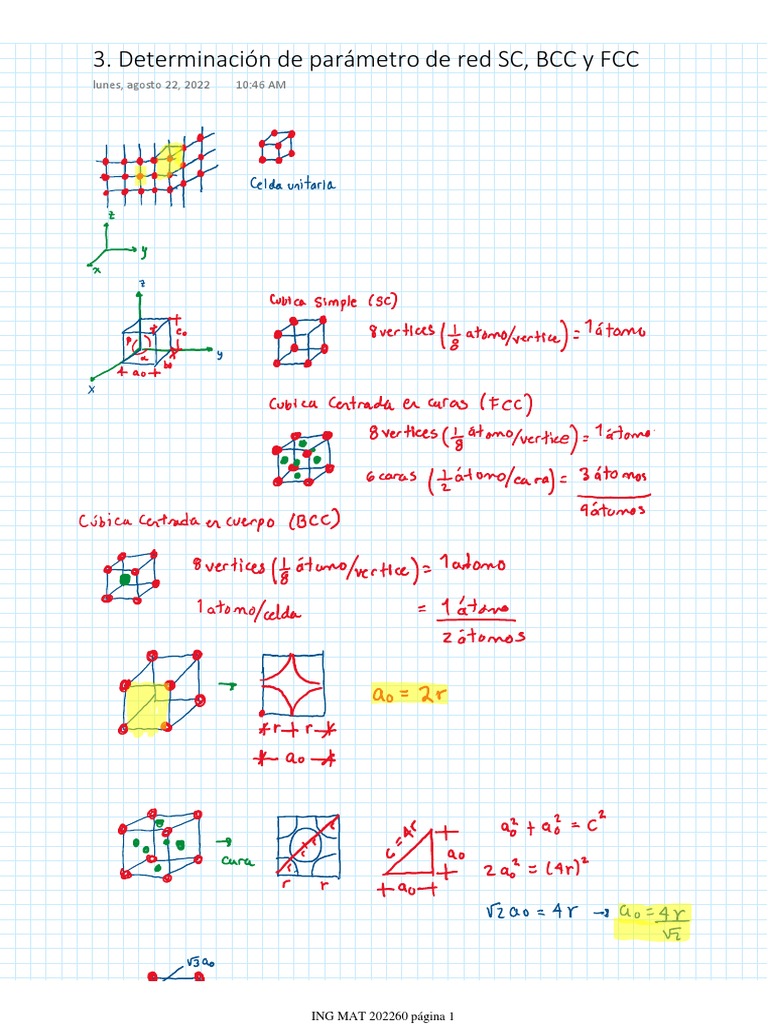 3. Determinación de parámetro de red SC, BCC y FCC
lunes, agosto 22, 2022 10:46 AM
Celda unitaria
z
y
x
z
Cubica Simple (SC)
8 vertices (1/8 atomo/vertice) = 1 átomo
β
α
c₀
b₀
a₀
y
x
Cubica Centrada en caras (FCC)
8 vertices (1/8 átomo/vertice) = 1 átomo
6 caras (1/2 átomo/cara) = 3 átomos
4 átomos
Cúbica Centrada en cuerpo (BCC)
8 vertices (1/8 átomo/vertice) = 1 atomo
1 atomo/celda = 1 átomo
2 átomos
a₀ = 2r
r r
a₀
cara
r r r r
r r
c = 4r
a₀
a₀
a₀² + a₀² = c²
2a₀² = (4r)²
√2 a₀ = 4r → a₀ = 4r/√2
√3 a₀
ING MAT 202260 página 1